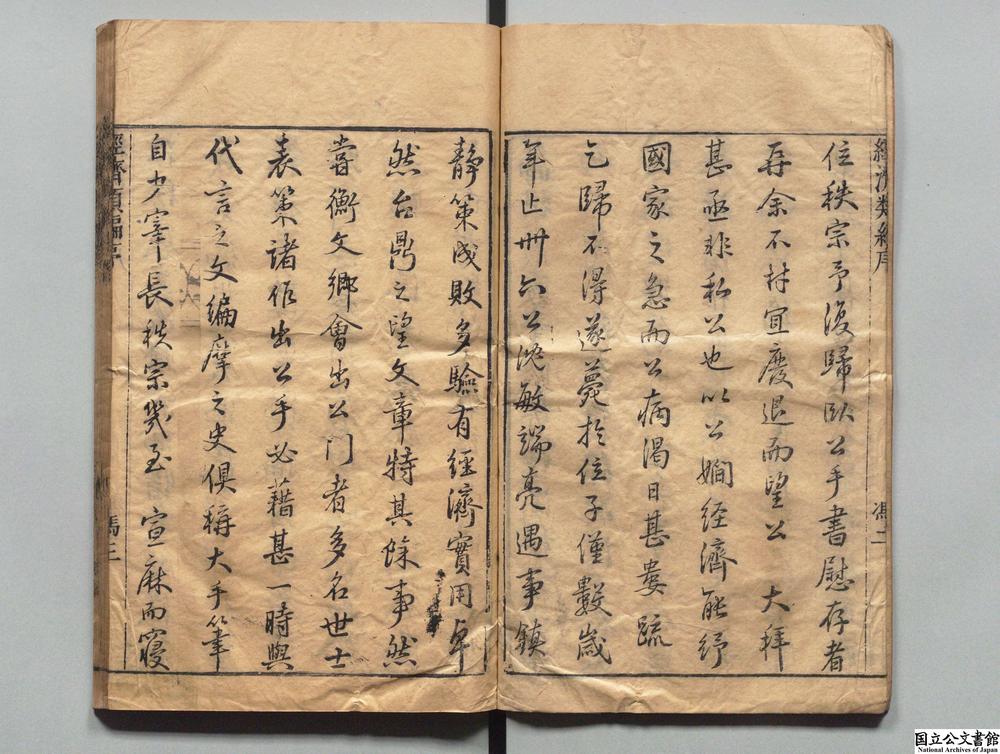 經濟類編序
馮二
位秩宗予復歸臥公手書慰存者
再余不材宜廢退而望公 大拜
甚亟非私公也以公嫺经濟能紓
國家之急而公病渴日甚婁疏
乞歸不得遂薨扵位子僅數歳
年止卌六公沈敏端亮遇事鎮
靜策成敗多驗有經濟實用卓
然台鼎之望文章特其餘事然
嘗衡文鄉會出公門者多名世士
表策諸作出公手必藉甚一時與
代言之文編摩之史俱稱大手筆
自少宰長秩宗幾至 宣麻而寢
經濟類編序
馮三
国立公文書館
National Archives of Japan